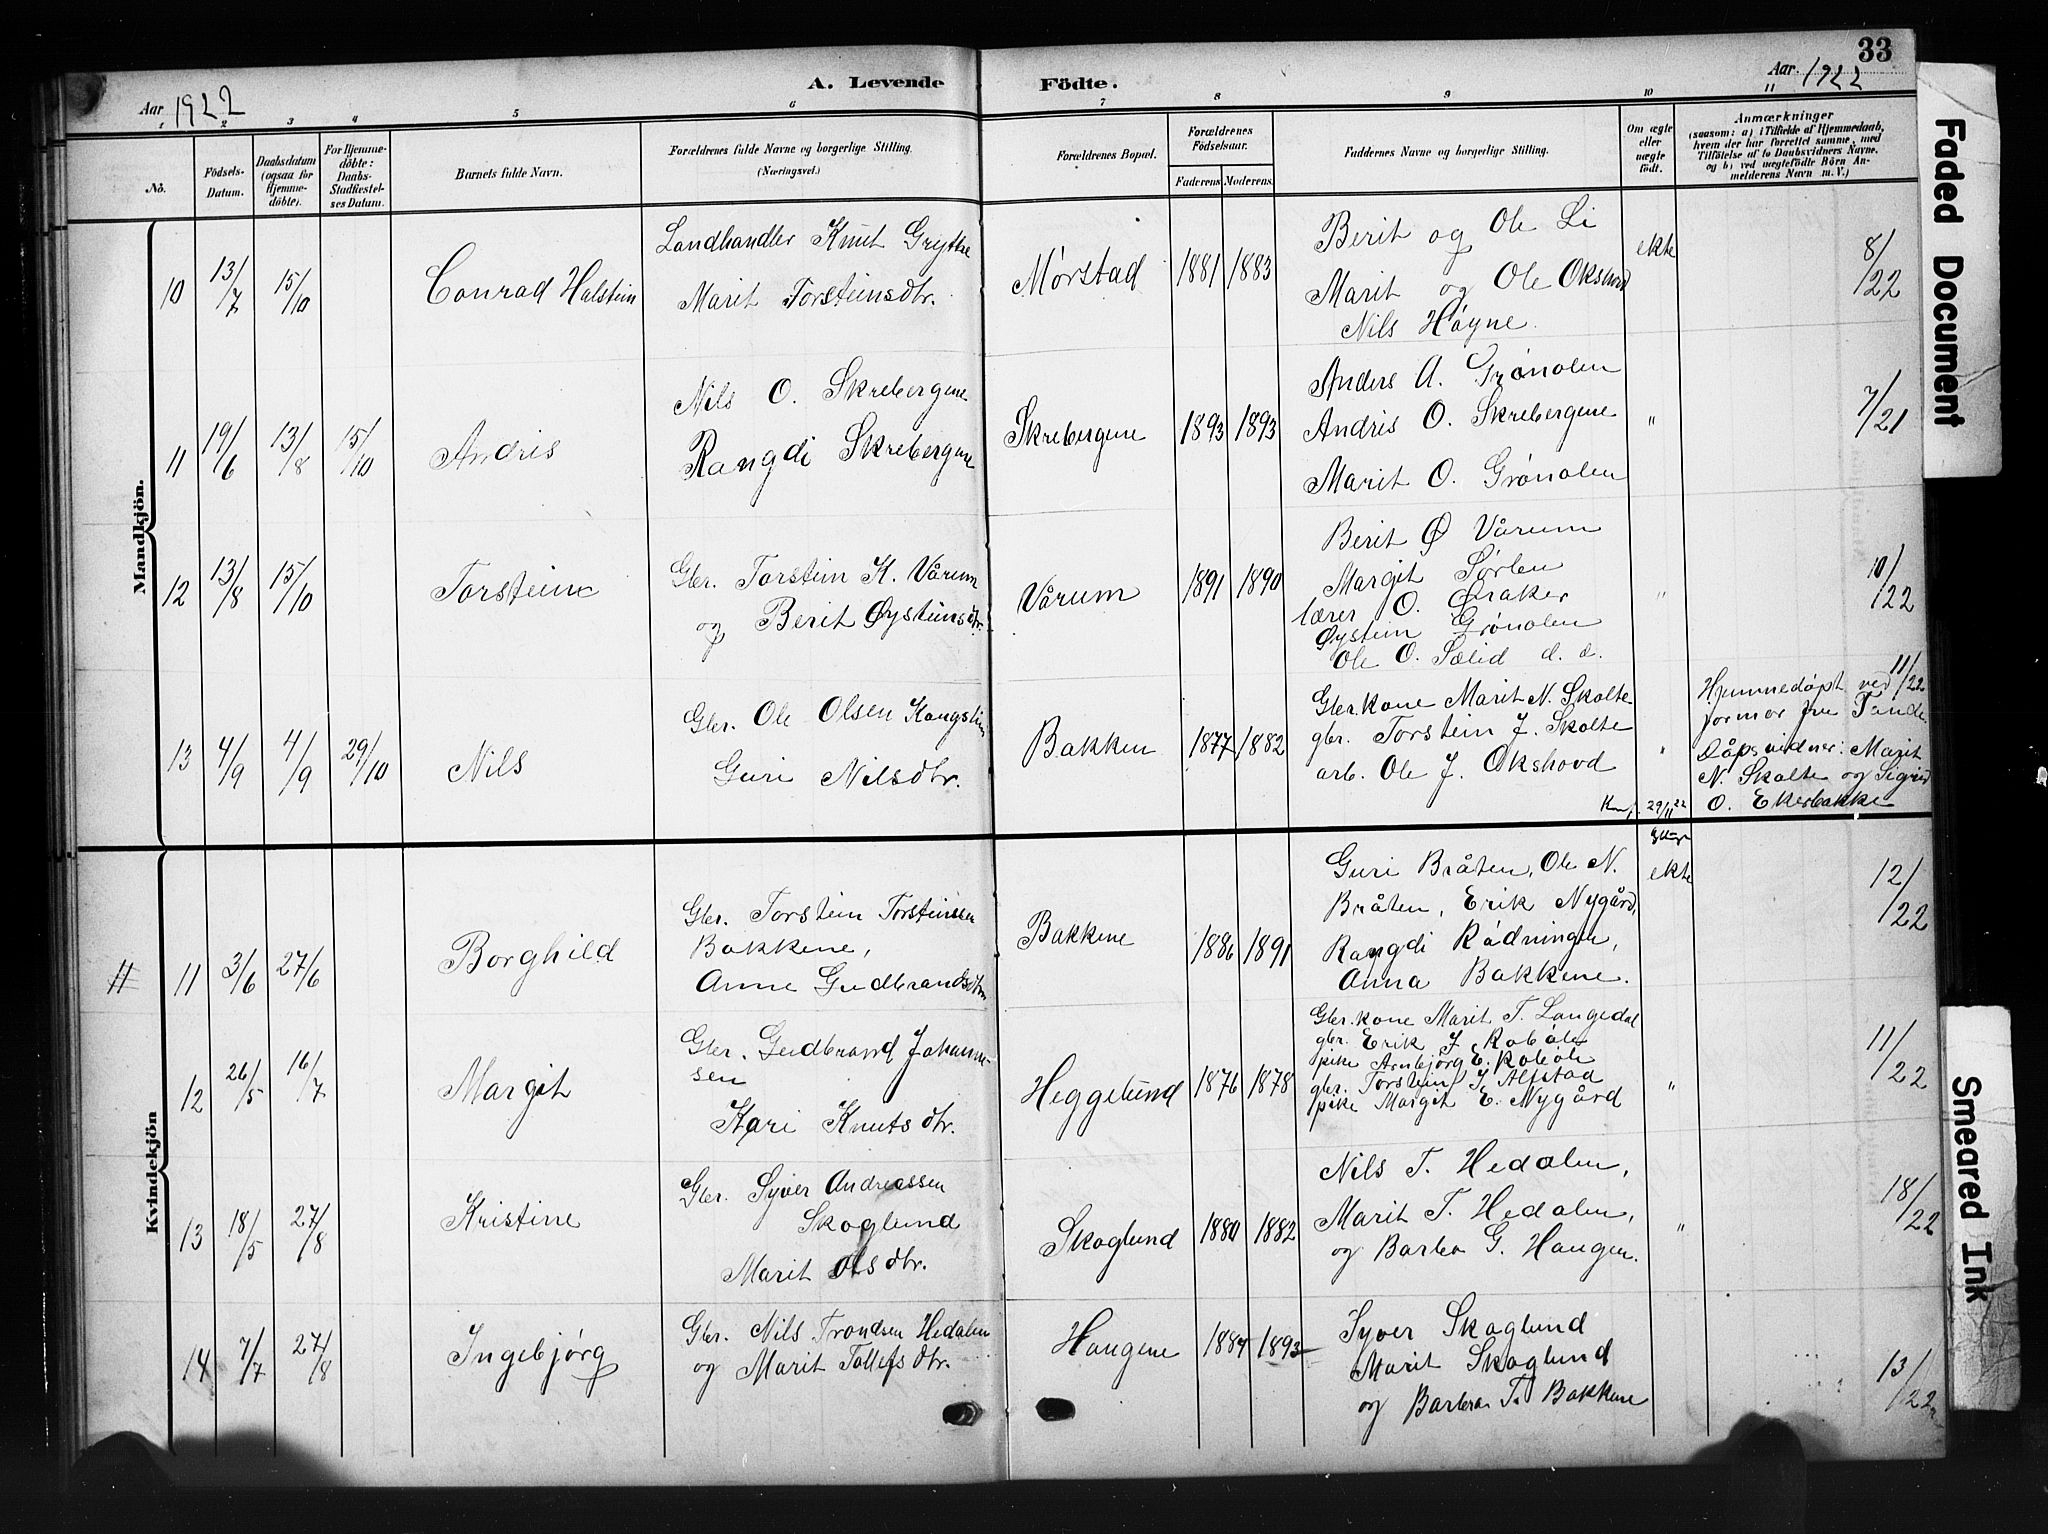 33
Aar 1922
A. Levende
Födte.
Aar. 1922
1 2 3 4 5 6 7 8 9 10 11
No.
Födsels-Datum.
Daabsdatum (ogsaa for Hjemme-döbte).
For Hjemme-döbte: Daabs-Stadfæstel-ses Datum.
Barnets fulde Navn.
Forældrenes fulde Navne og borgerlige Stilling. (Næringsvei.)
Forældrenes Bopæl.
Forældrenes Födselsaar.
Faderens Moderens.
Faddernes Navne og borgerlige Stilling.
Om ægte eller uægte födt.
Anmærkninger
(saasom: a) i Tilfælde af Hjemmedaab, hvem der har forrettet samme, med Tilföielse af to Daabsvidners Navne, og b) ved uægtefödte Börn An-melderens Navn m. V.)
Mandkjön.
10 13/7 15/10
Conrad Halstein
Landhandler Knut Grythe
Marit Torsteinsdtr.
Mørstad 1881 1883
Berit og Ole Li
Marit og Ole Okshovd
Nils Høyne.
ekte
8/22
11 19/6 13/8 15/10
Andris
Nils O. Skrebergene
Rangdi Skrebergene
Skrebergene 1893 1893
Anders A. Grønolen
Andris O. Skrebergene
Marit O. Grønolen
"
7/21
12 13/8 15/10
Torstein
Gbr. Torstein K. Vårum
og Berit Øysteinsdtr.
Vårum 1891 1890
Berit Ø Vårum
Margit Sørlen
lærer O. Øraker
Øystein Grønolen
Ole O. Sælid d. æ.
"
10/22
13 4/9 4/9 29/10
Nils
Gbr. Ole Olsen Kongslien
Guri Nilsdtr.
Bakken 1877 1882
Gbr.kone Marit N. Skolte
gbr. Torstein J. Skolte
arb. Ole J. Okshovd
"
11/22
Hjemmedøpt ved
jormor fru Tande
Dåpsvidner: Marit
N. Skolte og Sigrid
O. Ekerbakke
29/11 22
Kvindekjön
11 3/6 27/6
Borghild
Gbr. Torstein Torsteinssen
Bakkene,
Anne Gudbrandsdtr
Bakkene 1886 1891
Guri Bråten, Ole N.
Bråten, Erik Nygård,
Rangdi Rødningen,
Anna Bakkene.
ekte
12/22
12 26/5 16/7
Margit
Gbr. Gudbrand Johannes-
sen
Kari Knutsdtr.
Heggelund 1876 1878
Gbr.kone Marit T. Langedal
gbr. Erik J. Robøle
pike Arnbjørg E. Robøle
gbr. Torstein J. Alfstad
pike Margit E. Nygård
"
11/22
13 18/5 27/8
Kristine
Gbr. Syver Andreassen
Skoglund
Marit Olsdtr.
Skoglund 1880 1882
Nils T. Hedalen,
Marit T. Hedalen,
og Barbro G. Haugen.
"
18/22
14 7/7 27/8
Ingebjørg
Gbr. Nils Trondsen Hedalen
og Marit Tollefsdtr.
Haugene 1887 1893
Syver Skoglund
Marit Skoglund
og Barbra T. Bakkene
13/22
Faded Document
Smeared Ink